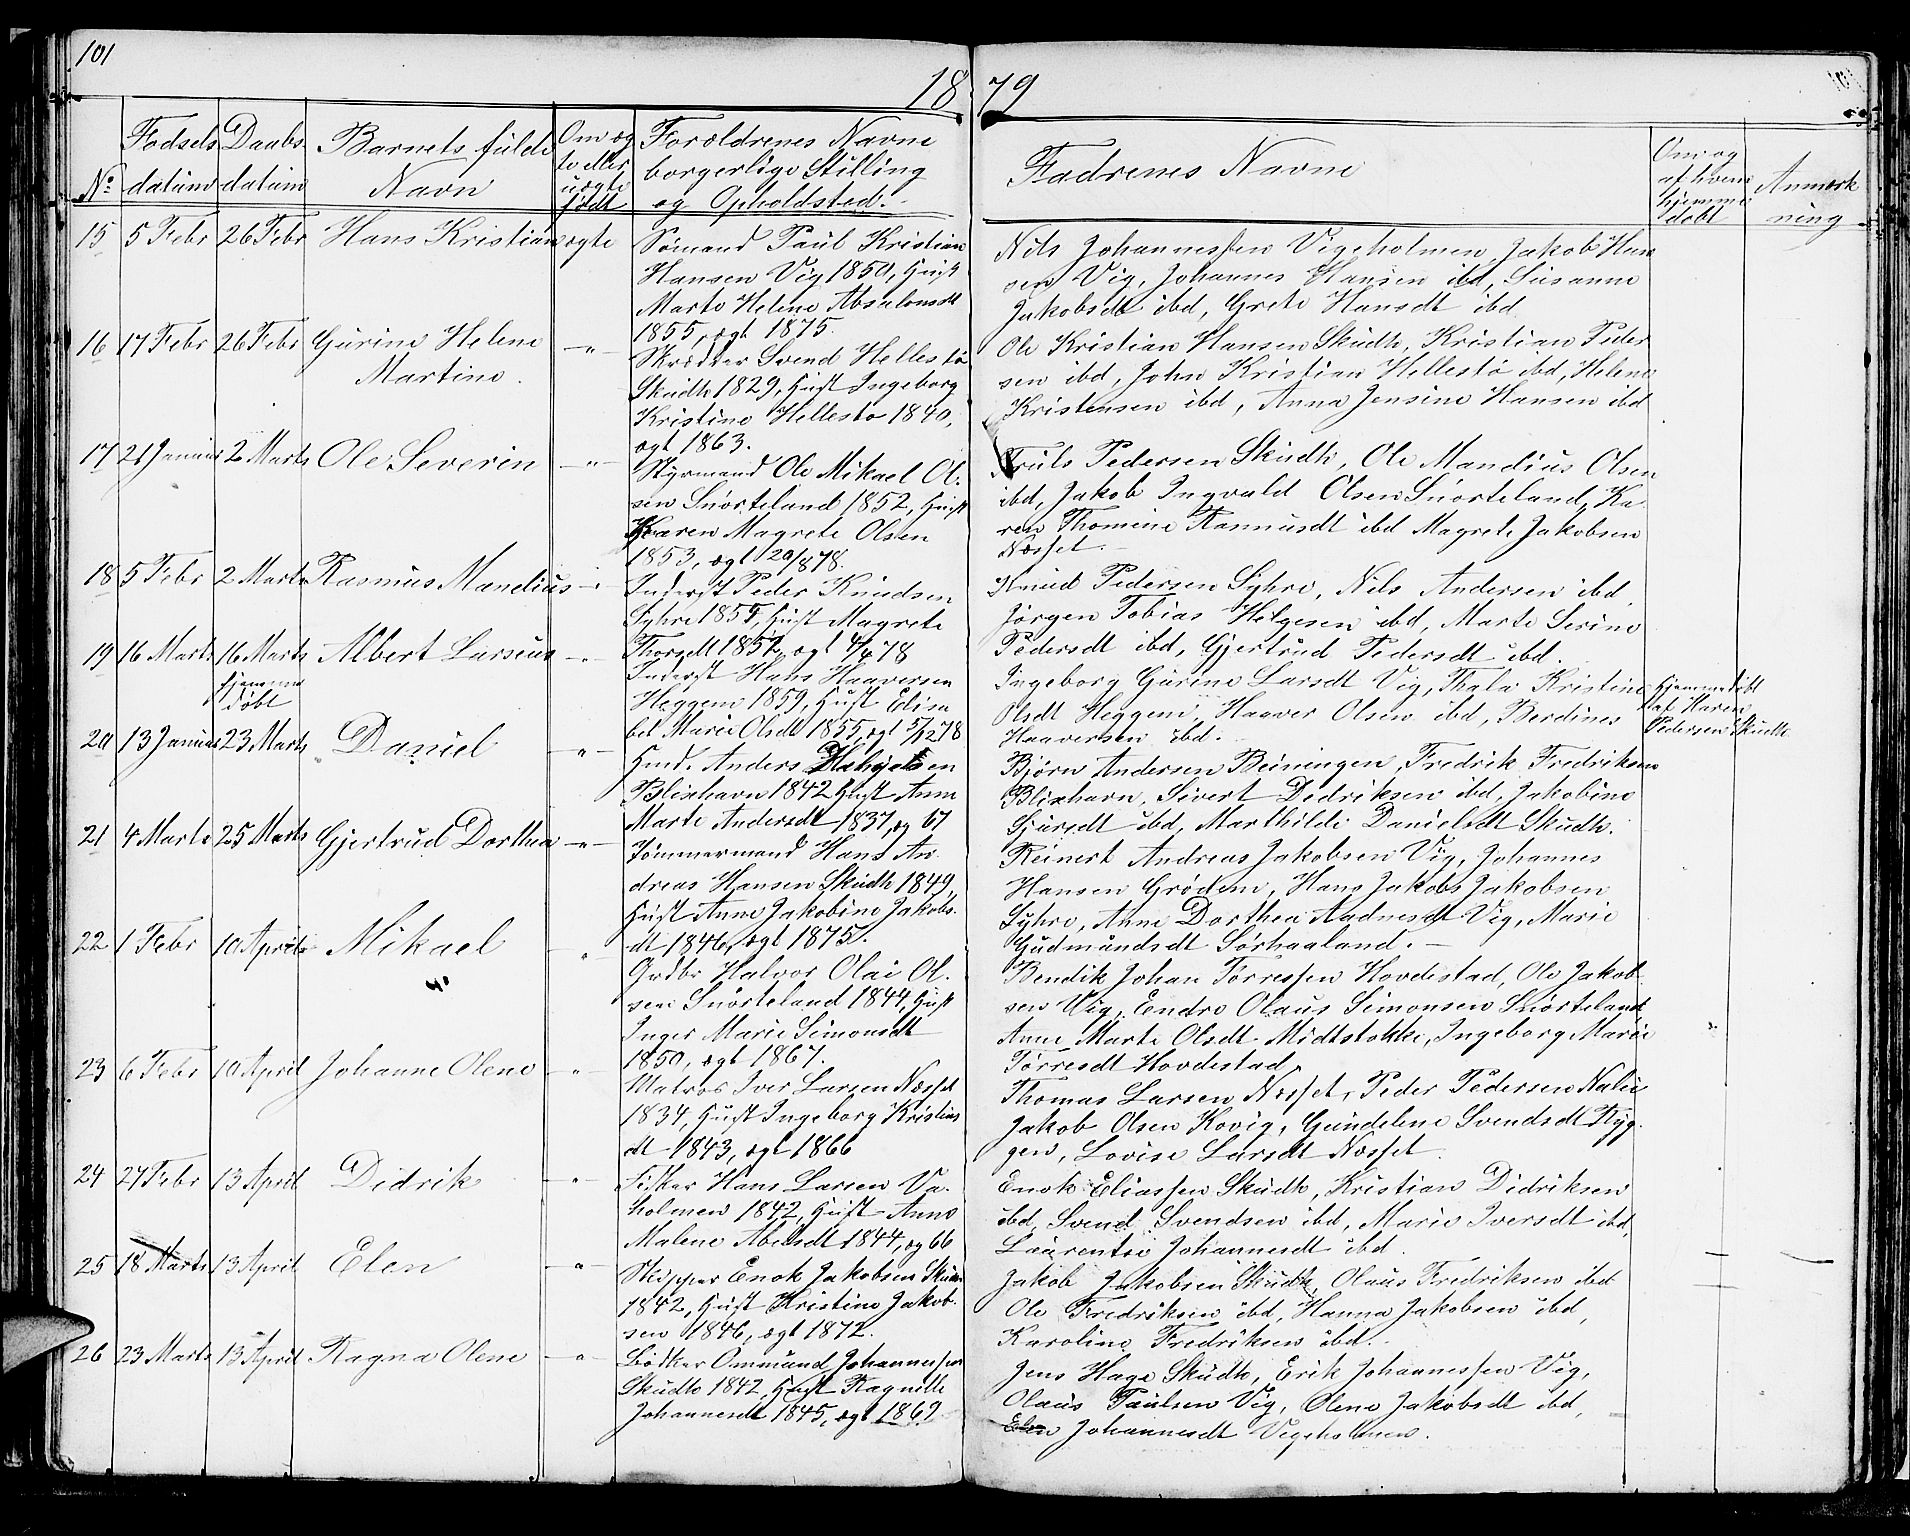 101
18 79
No
Fødsels datum
Daabs datum
Barnets fulde Navn
Om ægte eller uægte født
Forældrenes Navne borgerlige Stilling og Opholdsted.
Fadrenes Navne
Om og af hvem hjemme døbt
Anmærk ning
15 5 Febr 26 Febr Hans Kristian ægte
Sømand Paul Kristian
Hansen Vig 1850, Hust
Marte Helene Absalonsdt
1855, ægt 1875.
Nils Johannessen Vigeholmen, Jakob Han
sen Vig, Johannes Hansen ibd, Susanne
Jakobsdt ibd, Grete Hansdt ibd
16 17 Febr 26 Febr Gurine Helene
Martine. — " —
Skrædder Svend Hellestø
Skudh 1829, Hust Ingeborg
Kristine Hellestø 1840,
ægt 1863.
Ole Kristian Hansen Skudh, Kristian Peder
sen ibd, John Kristian Hellestö ibd, Helene
Kristensen ibd, Anna Jensine Hansen ibd
17 21 Januar 2 Marts Ole Severin — " —
Styrmand Ole Mikael Ol.
sen Snörteland 1852, Hust
Karen Magrete Olsen
1853, ægt 20/8 78.
Truls Pedersen Skudh, Ole Mandius Olsen
ibd, Jakob Ingvald Olsen Snörteland, Ka
ren Thomine Rasmusdt ibd Magrete Jakobsen
Næsset.
18 5 Febr 2 Marts Rasmus Mandius — " —
Inderst Peder Knudsen
Syhre 1855, Hust Magrete
Thorsdt 1852, ægt 4/4 78
Knud Pedersen Syhre, Nils Andersen ibd,
Jörgen Tobias Helgesen ibd, Marte Serine
Pedersdt ibd, Gjertrud Pedersdt ibd.
19 16 Marts 16 Marts Albert Larsius — " —
hjemme
döbt
Inderst Hans Haaversen
Heggem 1859, Hust Elisa
bet Marie Olsdt 1855, ægt 5/12 78
Ingeborg Gurine Larsdt Vig, Thala Kristine
Olsdt Heggem, Haaver Olsen ibd, Berdines
Haaversen ibd.
Hjemmedöbt
af Maren
Pedersen Skudh
20 13 Januar 23 Marts Daniel — " —
Husd. Anders
Blixhavn 1842 Hust Anne
Marte Andersdt 1837, æg 67
Björn Andersen Beiningen, Fredrik Fredriksen
Blixhavn, Sivert Didriksen ibd, Jakobine
Sjursdt ibd, Marthilde Danielsdt Skudh.
21 4 Marts 25 Marts Gjertrud Dorthea — " —
Tömmermand Hans An.
dreas Hansen Skudh 1849,
Hust Anne Jakobine Jakobs.
dt 1846, ægt 1875.
Reinert Andreas Jakobsen Vig, Johannes
Hansen Grödem, Hans Jakob Jakobsen
Syhre, Anne Dorthea Aadnesdt Vig, Marie
Gudmundsdt Sörhaaland. —
22 1 Febr 10 Aprils Mikael "
Grdbr Halvor Olai Ol.
sen Snörteland 1844, Hust
Inger Marie Simonsdt
1850, ægt 1867.
Bendik Johan Törressen Hovdestad, Ole Jakob
sen Vig, Endre Olaus Simonsen Snörteland
Anne Marte Olsdt Midtstokke, Ingeborg Marie
Törresdt Hovdestad
23 6 Febr 10 April Johanne Olene — " —
Matros Iver Larsen Næsset
1834, Hust Ingeborg Kristians
dt 1843, ægt 1866
Thomas Larsen Næsset, Peder Pedersen
Jakob Olsen Kovig, Gundelene Svendsdt Ryg.
gen, Lovise Larsdt Næsset.
24 27 Febr 13 April Didrik "
Fisker Hans Larsen Va.
holmen 1842, Hust Anne
Malene 1844, æg 66
Enok Eliassen Skudh, Kristian Didriksen
ibd, Svend Svendsen ibd, Marie Iversdt ibd,
Laurentse Johannesdt ibd.
25 18 Marts 13 April Elen — " —
Skipper Enok Jakobsen Skudh
1842, Hust Kristine Jakob.
sen 1846, ægt 1872.
Jakob Jakobsen Skudh, Olaus Fredriksen ibd
Ole Fredriksen ibd, Hanna Jakobsen ibd,
Karoline Fredriksen ibd.
26 23 Marts 13 April Ragna Olene — " —
Bödker Ommund Johannessen
Skudh 1842, Hust Ragnilde
Johannesdt 1845, ægt 1869
Jens Hage Skudh, Erik Johannessen Vig,
Olaus Paulsen Vig, Olene Jakobsdt ibd,
Elen Johannesdt Vigeholmen.